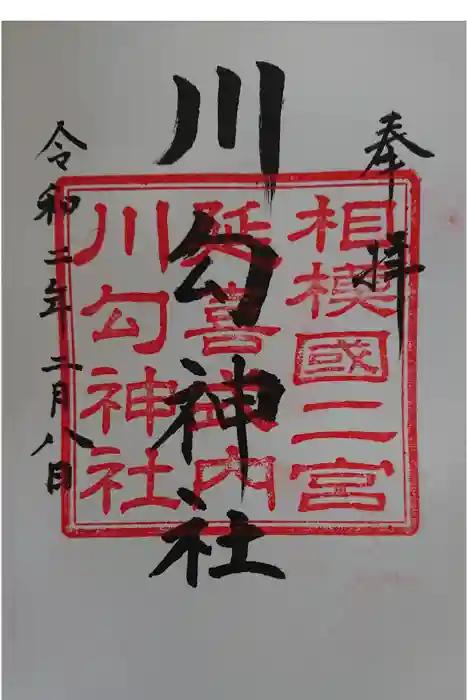 奉拝
相模國二宮
川勾神社
延喜神名内
川勾神社
令和二年二月八日